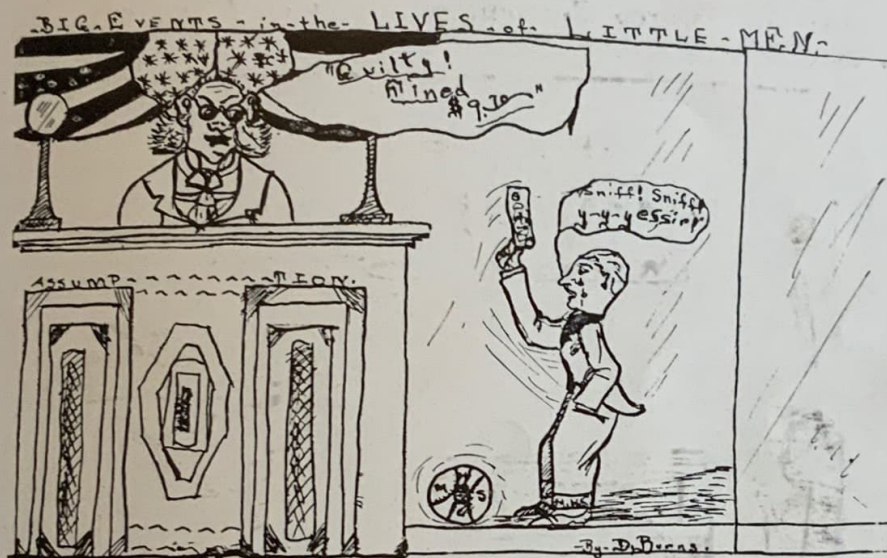 BIG EVENTS in the LIVES of LITTLE MEN
"Guilty!
Fined
$9.70"
Sniff! Sniff!
y-y-yessir!
ASSUMPTION.
By D. Burns.